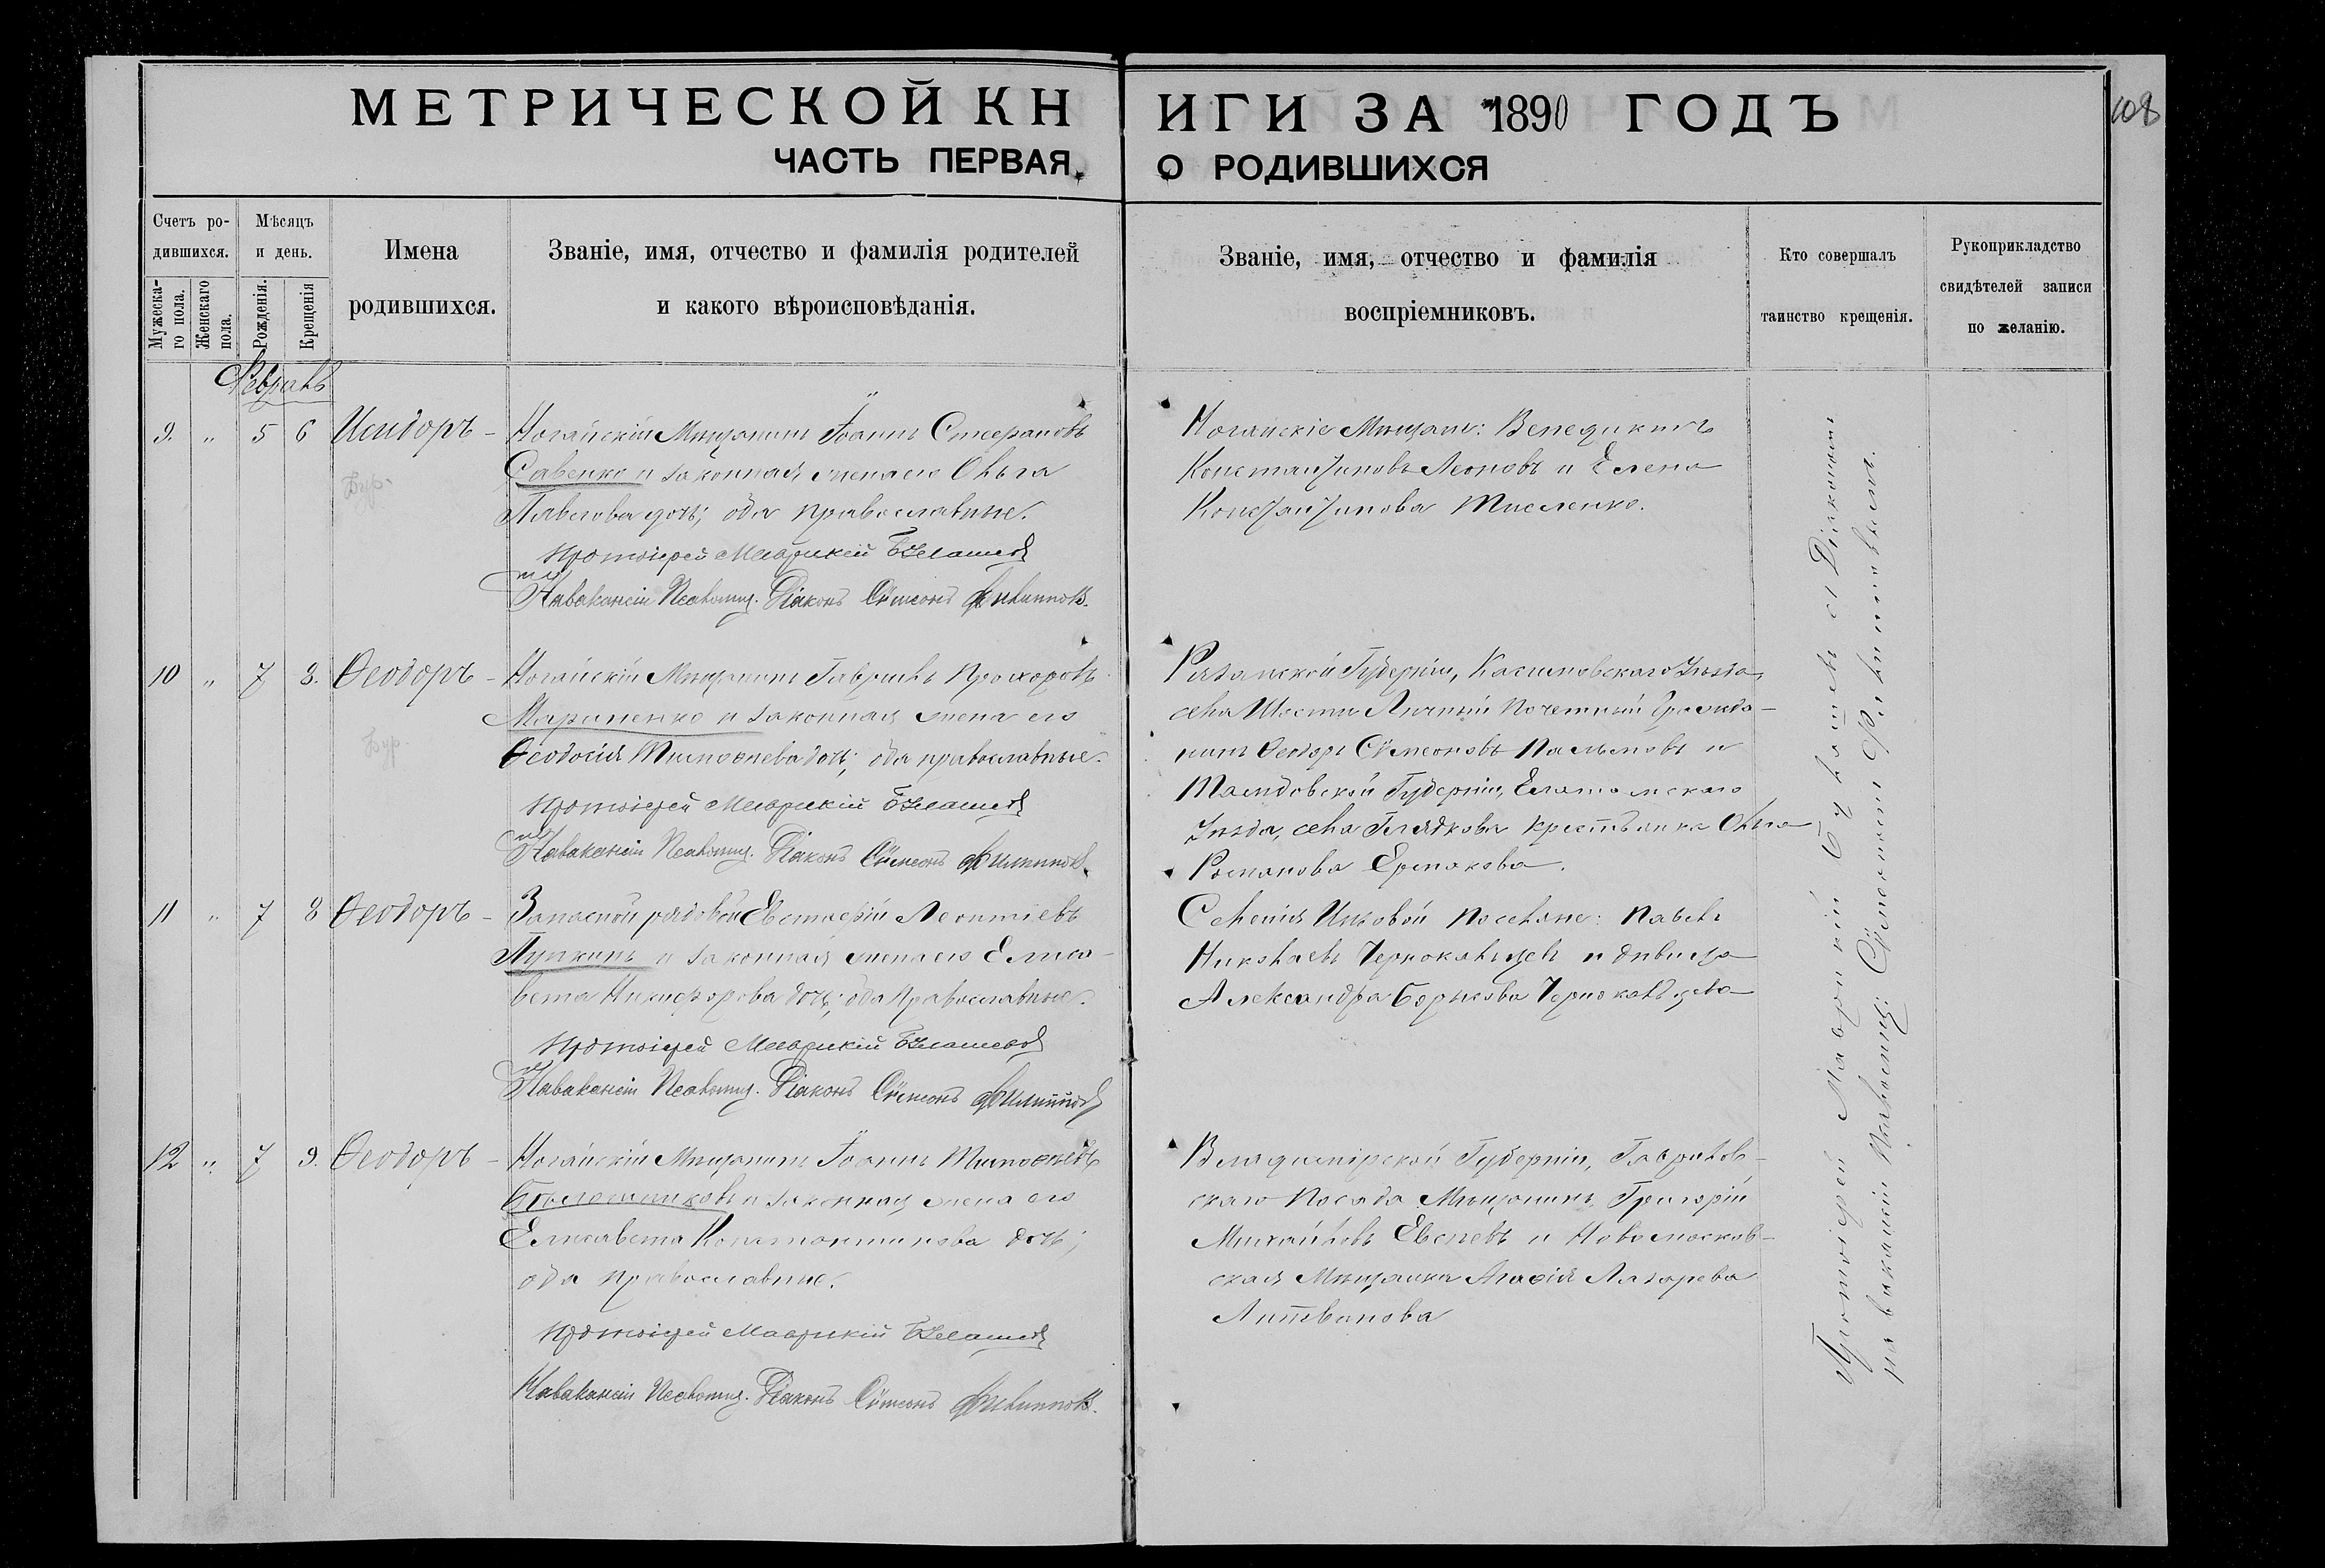 МЕТРИЧЕСКОЙ КНИГИ ЗА 1890 ГОДЪ
108
ЧАСТЬ ПЕРВАЯ, О РОДИВШИХСЯ
Счетъ ро-
дившихся.
Мужеска-
го пола.
Женскаго
пола.
Мѣсяцъ
и день.
Рожденія.
Крещенія
Имена
родившихся.
Званіе, имя, отчество и фамилія родителей
и какого вѣроисповѣданія.
Званіе, имя, отчество и фамилія
воспріемниковъ.
Кто совершалъ
таинство крещенія.
Рукоприкладство
свидѣтелей записи
по желанію.
Февраль
9. " 5 6 Исидоръ -
Ногайскій Мѣщанинъ Іоаннъ Стефановъ
Савенко и законная жена его Ольга
Павлова дочь; оба православные.
Протоіерей Маврикій
Навакансіи Псаломщ. Діаконъ Сѵмеонъ Филипповъ.
Ногайскіе Мѣщане: Венедиктъ
Константиновъ Леоновъ и Елена
Константинова Тисленко.
10 " 7 8. Ѳеодоръ -
Ногайскій Мѣщанинъ Гавріилъ Прохоровъ
Мариненко и законная жена его
Ѳеодосія Тимоѳеева дочь; оба православные.
Протоіерей Маврикій
Навакансіи Псаломщ. Діаконъ Сѵмеонъ Филипповъ.
Рязанской Губерніи, Касимовскаго Уѣзда,
села Шости Личный Почетный Гражда-
нинъ Ѳеодоръ Сѵмеоновъ Пальмовъ и
Тамбовской Губерніи, Елатомскаго
Уѣзда, села Глядкова крестьянка Ольга
Романова Ермакова.
11 " 7 8 Ѳеодоръ -
Запасной рядовой Евстафій Леонтіевъ
Пупкинъ и законная жена его Елиса-
вета Никифорова дочь; оба Православные.
Протоіерей Маврикій
Навакансіи Псаломщ. Діаконъ Сѵмеонъ Филипповъ
Селенія Инзовой поселяне: Павелъ
Николаевъ Чернокальцевъ и дѣвица
Александра Чернокальцева
12 " 7 9. Ѳеодоръ -
Ногайскій Мѣщанинъ Іоаннъ Тимоѳеевъ
и законная жена его
Елисавета Константинова дочь;
оба православные.
Протоіерей Маврикій
Навакансіи Псаломщ. Діаконъ Сѵмеонъ Филипповъ.
Владимірской Губерніи, Гаврилов-
скаго Посада Мѣщанинъ Григорій
Михайловъ Евсѣевъ и Новомосков-
ская Мѣщанка Агаѳія Лазарева
Литвинова
Протоіерей Маврикій съ Діакономъ
на вакансіи Псаломщ: Сѵмеономъ Филипповымъ.